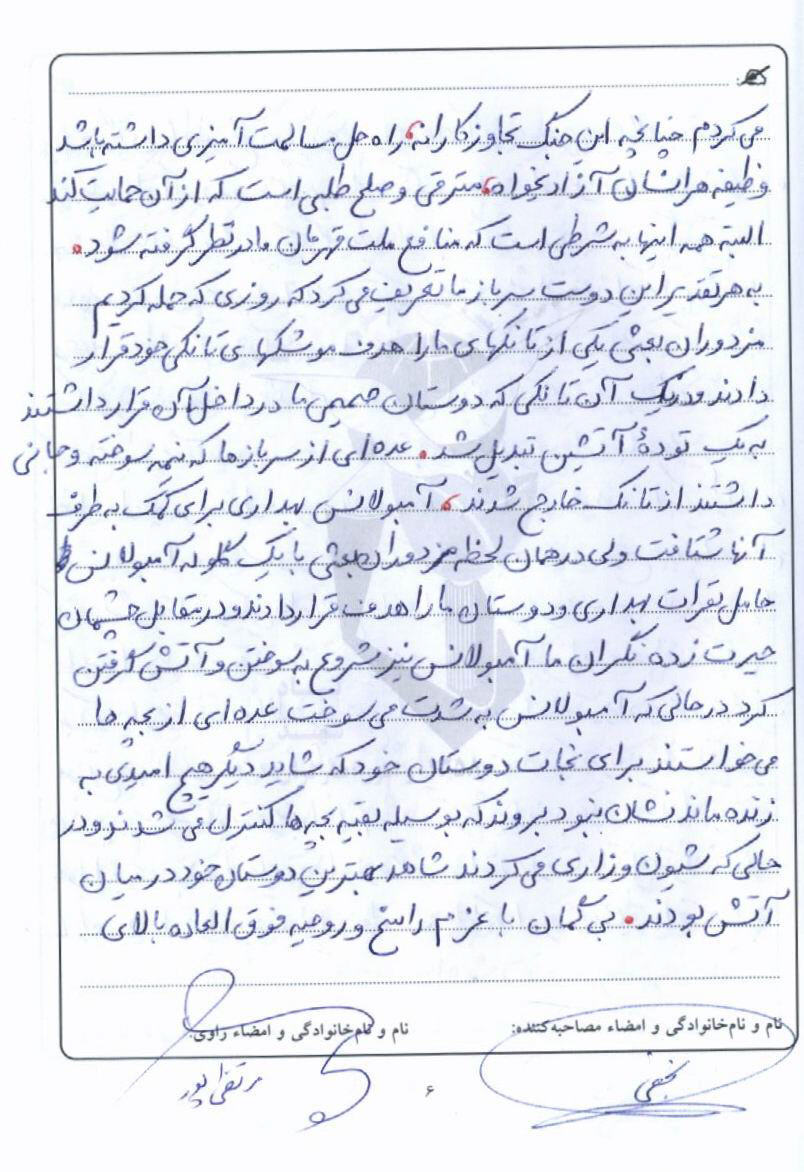 می کردم چنانچه این جنگ تجاوزکارانه، راه حل مسالمت آمیزی داشته باشد
وظیفه هر انسان آزادیخواه، مترقی و صلح طلبی است که از آن حمایت کند
البته همه اینها به شرطی است که منافع ملت قهرمان ما در نظر گرفته شود.
به هر تقدیر این دوست سرباز ما تعریف می کرد که روزی که حمله کردیم
مزدوران بعثی یکی از تانکهای ما را هدف موشکهای تانکی خود قرار
دادند و در یک آن تانکی که دوستان صمیمی ما در داخل آن قرار داشتند
به یک تودۀ آتشین تبدیل شد. عده ای از سربازها که نیمه سوخته و جانی
داشتند از تانک خارج شدند، آمبولانس بهداری برای کمک به طرف
آنها شتافت ولی در همان لحظه مزدوران بعثی با یک گلوله آمبولانس
حامل نفرات بهداری و دوستان ما را هدف قرار دادند و در مقابل چشمان
حیرت زده نگران ما آمبولانس نیز شروع به سوختن و آتش گرفتن
کرد در حالی که آمبولانس به شدت می سوخت عده ای از بچه ها
می خواستند برای نجات دوستان خود که شاید دیگر هیچ امیدی به
زنده ماندنشان نبود بروند که بوسیله بقیه بچه ها کنترل می شدند و در
حالی که شیون و زاری می کردند شاهد بهترین دوستان خود در میان
آتش بودند. بی گمان با عزم راسخ و روحیه فوق العاده بالای
نام و نام‌خانوادگی و امضاء مصاحبه‌کننده: نام و نام‌خانوادگی و امضاء راوی:
نجفی مرتضی پور
۶